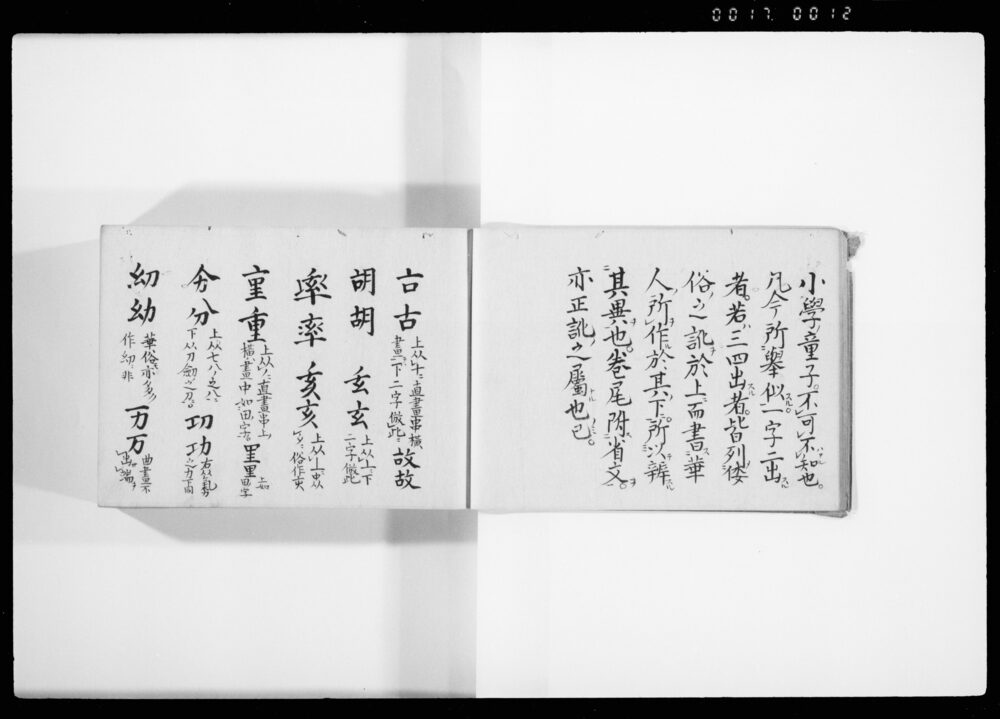 0017 0012
小學童子不可不知也
凡今所擧似一字二出
者若三四出者皆列倭
俗之訛於上而書華
人所作於其下所以辨
其異也卷尾附省文
亦正訛之屬也已
古古 上从十直畫串橫畫下二字倣此 故故
胡胡 玄玄 上从亠下二字倣此
率率 亥亥
重重 直畫串上橫畫中如田字 里里 上如田字
分分 上从七八之八下从刀劍之刀 功功
幼幼 華俗亦多作幼非 万万 曲畫不出端